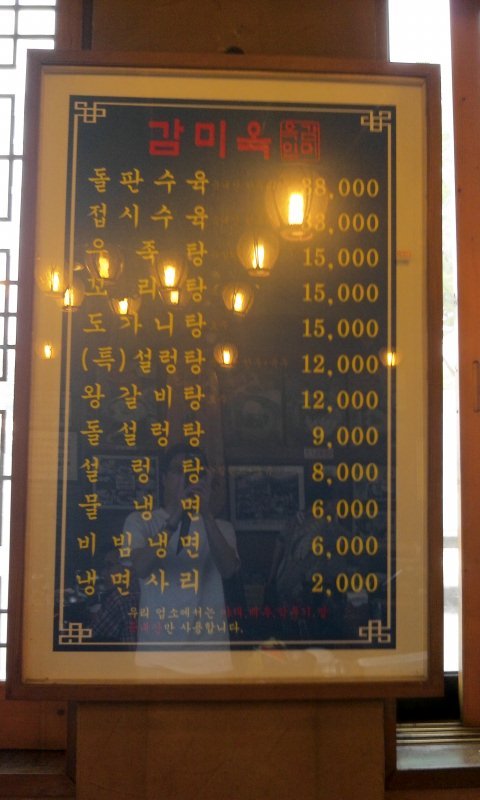 감미옥 옥감인미
돌판수육 38,000
접시수육 33,000
우족탕 15,000
꼬리탕 15,000
도가니탕 15,000
(특)설렁탕 12,000
왕갈비탕 12,000
돌설렁탕 9,000
설렁탕 8,000
물냉면 6,000
비빔냉면 6,000
냉면사리 2,000
우리 업소에서는
만 사용합니다.